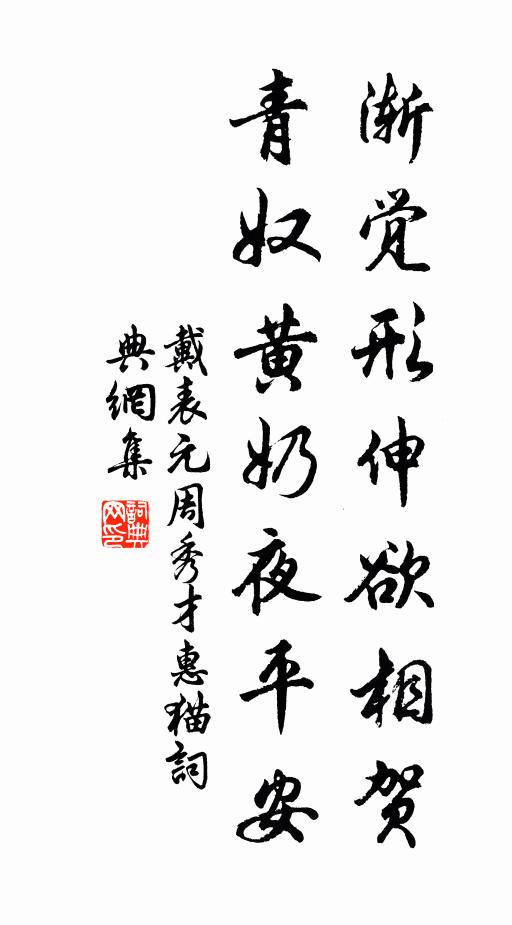 渐觉形伸欲相贺
青奴黄奶夜平安
戴表元周秀才惠猫詞
典網集
詞典网印